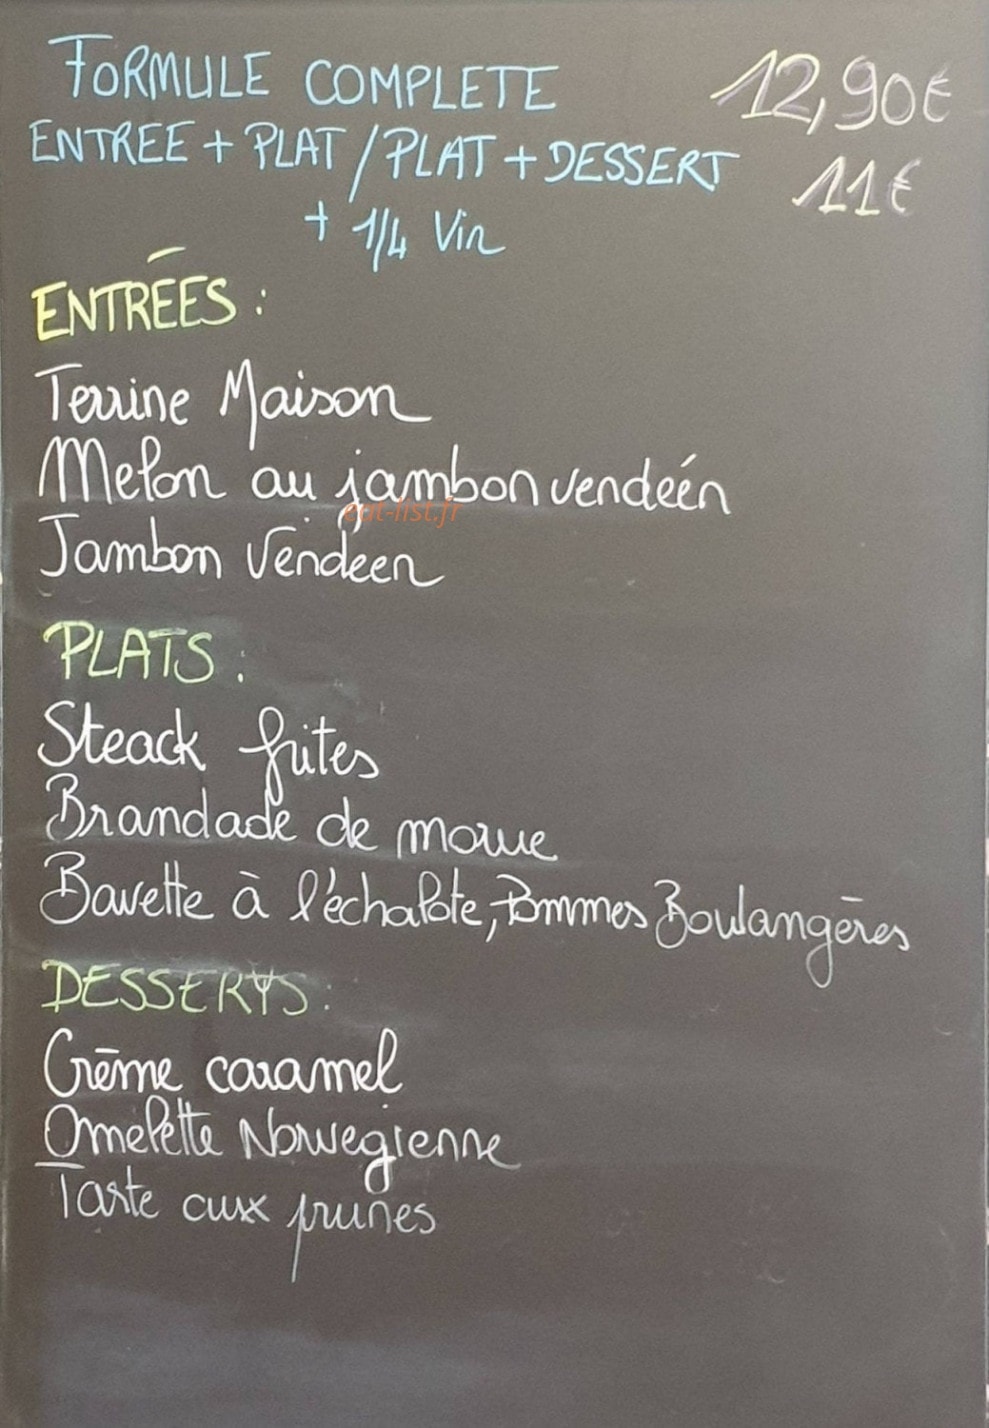 FORMULE COMPLETE 12,90€
ENTREE + PLAT / PLAT + DESSERT 11€
+ 1/4 Vin
ENTRÉES :
Terrine Maison
Melon au jambon vendéén
eat-list.fr
Jambon Vendéen
PLATS :
Steack frites
Brandade de morue
Bavette à l'échalote, Pommes Boulangères
DESSERTS :
Crème caramel
Omelette Norvegienne
Tarte aux prunes